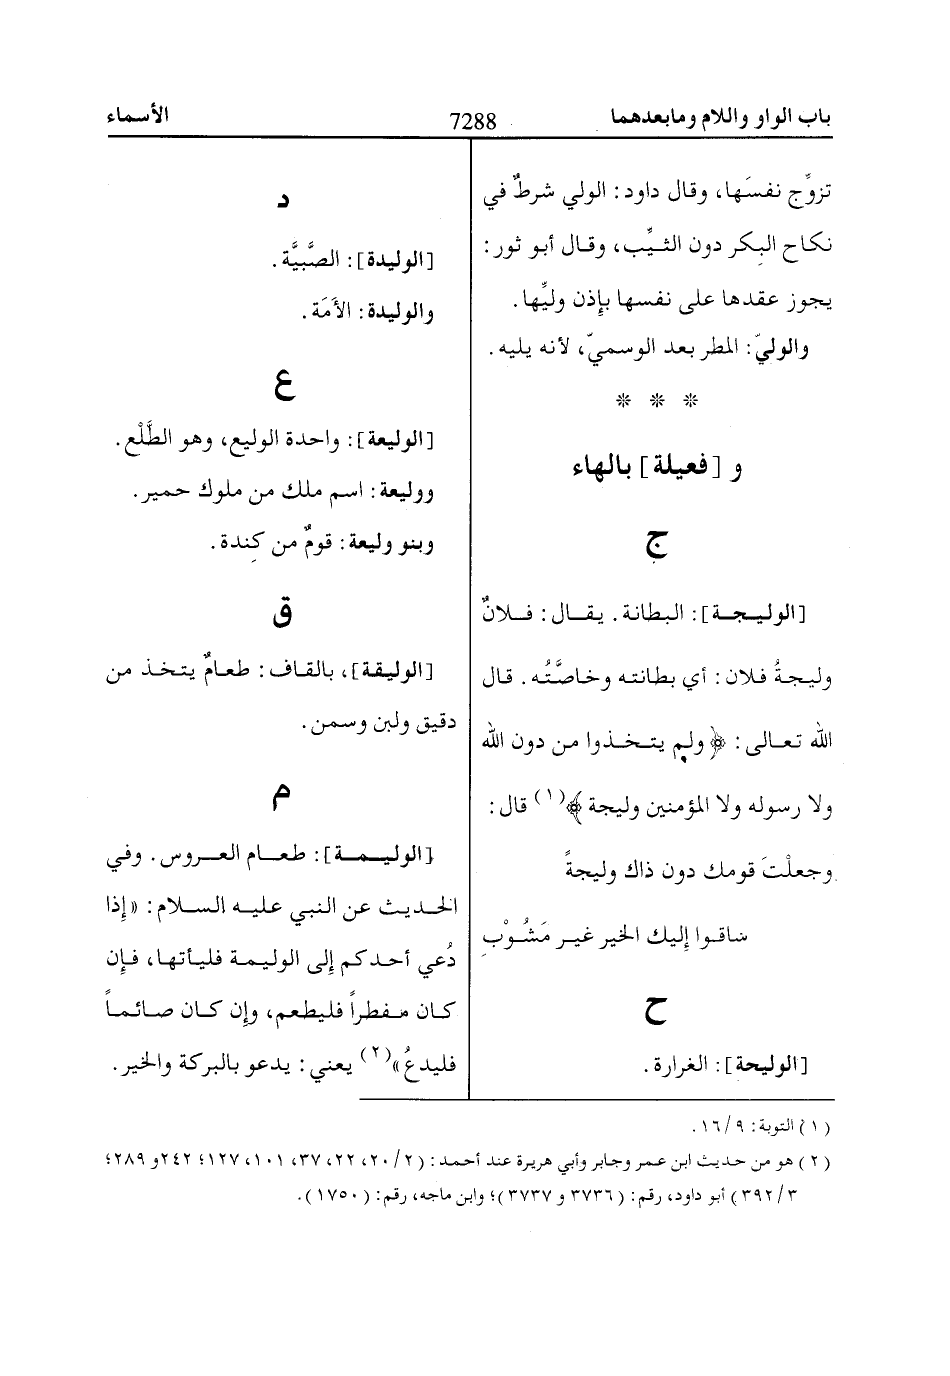 باب الواو واللام ومابعدهما
7288
الأسماء
تزوِّج نفسَها، وقال داود: الولي شرطٌ في
نكاح البِكر دون الثيِّب، وقال أبو ثور:
يجوز عقدها على نفسها بإِذن وليِّها.
والوليّ: المطر بعد الوسميّ، لأنه يليه.
* * *
و [فعيلة] بالهاء
ج
[الوليجة]: البطانة. يقال: فلانٌ
وليجةُ فلان: أي بطانته وخاصَّتُه. قال
الله تعالى: ﴿ولم يتخذوا من دون الله
ولا رسوله ولا المؤمنين وليجة﴾(١) قال:
وجعلْتَ قومك دون ذاك وليجةً
سَاقوا إِليك الخير غير مَشُوْبِ
ح
[الوليحة]: الغرارة.
د
[الوليدة]: الصَّبيَّة.
والوليدة: الأَمَة.
ع
[الوليعة]: واحدة الوليع، وهو الطَّلْع.
ووليعة: اسم ملك من ملوك حمير.
وبنو وليعة: قومٌ من كِندة.
ق
[الوليقة]، بالقاف: طعامٌ يتخذ من
دقيق ولبن وسمن.
م
[الوليمة]: طعام العروس. وفي
الحديث عن النبي عليه السلام: «إِذا
دُعي أحدكم إِلى الوليمة فليأتها، فإِن
كان مفطراً فليطعم، وإِن كان صائماً
فليدعُ»(٢) يعني: يدعو بالبركة والخير.
(١) التوبة: ٩/١٦.
(٢) هو من حديث ابن عمر وجابر وأبي هريرة عند أحمد: (٢/٢٠، ٢٢، ٣٧، ١٠١، ١٢٧؛ ٢٤٢و ٢٨٩؛
٣/٣٩٢) أبو داود، رقم: (٣٧٣٦ و ٣٧٣٧)؛ وابن ماجه، رقم: (١٧٥٠).